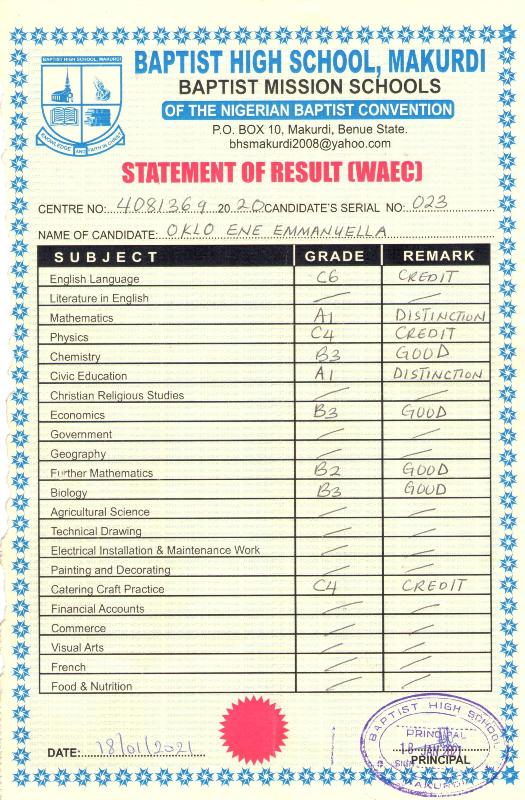 BAPTIST HIGH SCHOOL, MAKURDI
BAPTIST HIGH SCHOOL, MAKURDI
BAPTIST MISSION SCHOOLS
OF THE NIGERIAN BAPTIST CONVENTION
P.O. BOX 10, Makurdi, Benue State.
bhsmakurdi2008@yahoo.com
KNOWLEDGE AND FAITH IN CHRIST
STATEMENT OF RESULT (WAEC)
CENTRE NO: 4081369 20 20 CANDIDATE'S SERIAL NO: 023
NAME OF CANDIDATE: OKLO ENE EMMANUELLA
SUBJECT GRADE REMARK
English Language C6 CREDIT
Literature in English
Mathematics A1 DISTINCTION
Physics C4 CREDIT
Chemistry B3 GOOD
Civic Education A1 DISTINCTION
Christian Religious Studies
Economics B3 GOOD
Government
Geography
Further Mathematics B2 GOOD
Biology B3 GOOD
Agricultural Science
Technical Drawing
Electrical Installation & Maintenance Work
Painting and Decorating
Catering Craft Practice C4 CREDIT
Financial Accounts
Commerce
Visual Arts
French
Food & Nutrition
DATE: 18/01/2021
BAPTIST HIGH SCHOOL
PRINCIPAL
18 JAN 2021
SIGN
PRINCIPAL
MAKURDI